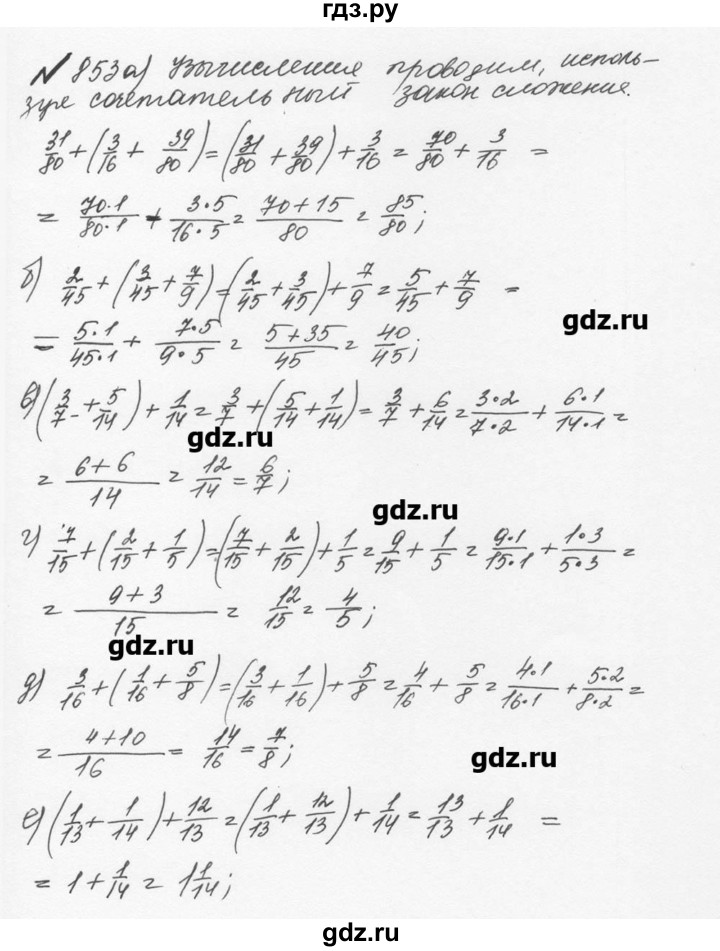 гдз.ру
№ 853 а) Вычисления проводим, исполь-
зуя сочетательный закон сложения.
31/80 + (3/16 + 39/80) = (31/80 + 39/80) + 3/16 = 70/80 + 3/16 =
= 70·1/80·1 + 3·5/16·5 = 70+15/80 = 85/80;
б) 2/45 + (3/45 + 7/9) = (2/45 + 3/45) + 7/9 = 5/45 + 7/9 =
gdz.ru
= 5·1/45·1 + 7·5/9·5 = 5+35/45 = 40/45;
в) (3/7 + 5/14) + 1/14 = 3/7 + (5/14 + 1/14) = 3/7 + 6/14 = 3·2/7·2 + 6·1/14·1 =
gdz.ru
= 6+6/14 = 12/14 = 6/7;
gdz.ru
г) 7/15 + (2/15 + 1/5) = (7/15 + 2/15) + 1/5 = 9/15 + 1/5 = 9·1/15·1 + 1·3/5·3 =
= 9+3/15 = 12/15 = 4/5;
gdz.ru
д) 3/16 + (1/16 + 5/8) = (3/16 + 1/16) + 5/8 = 4/16 + 5/8 = 4·1/16·1 + 5·2/8·2 =
= 4+10/16 = 14/16 = 7/8;
gdz.ru
е) (1/13 + 1/14) + 12/13 = (1/13 + 12/13) + 1/14 = 13/13 + 1/14 =
= 1 + 1/14 = 1 1/14;
gdz.ru